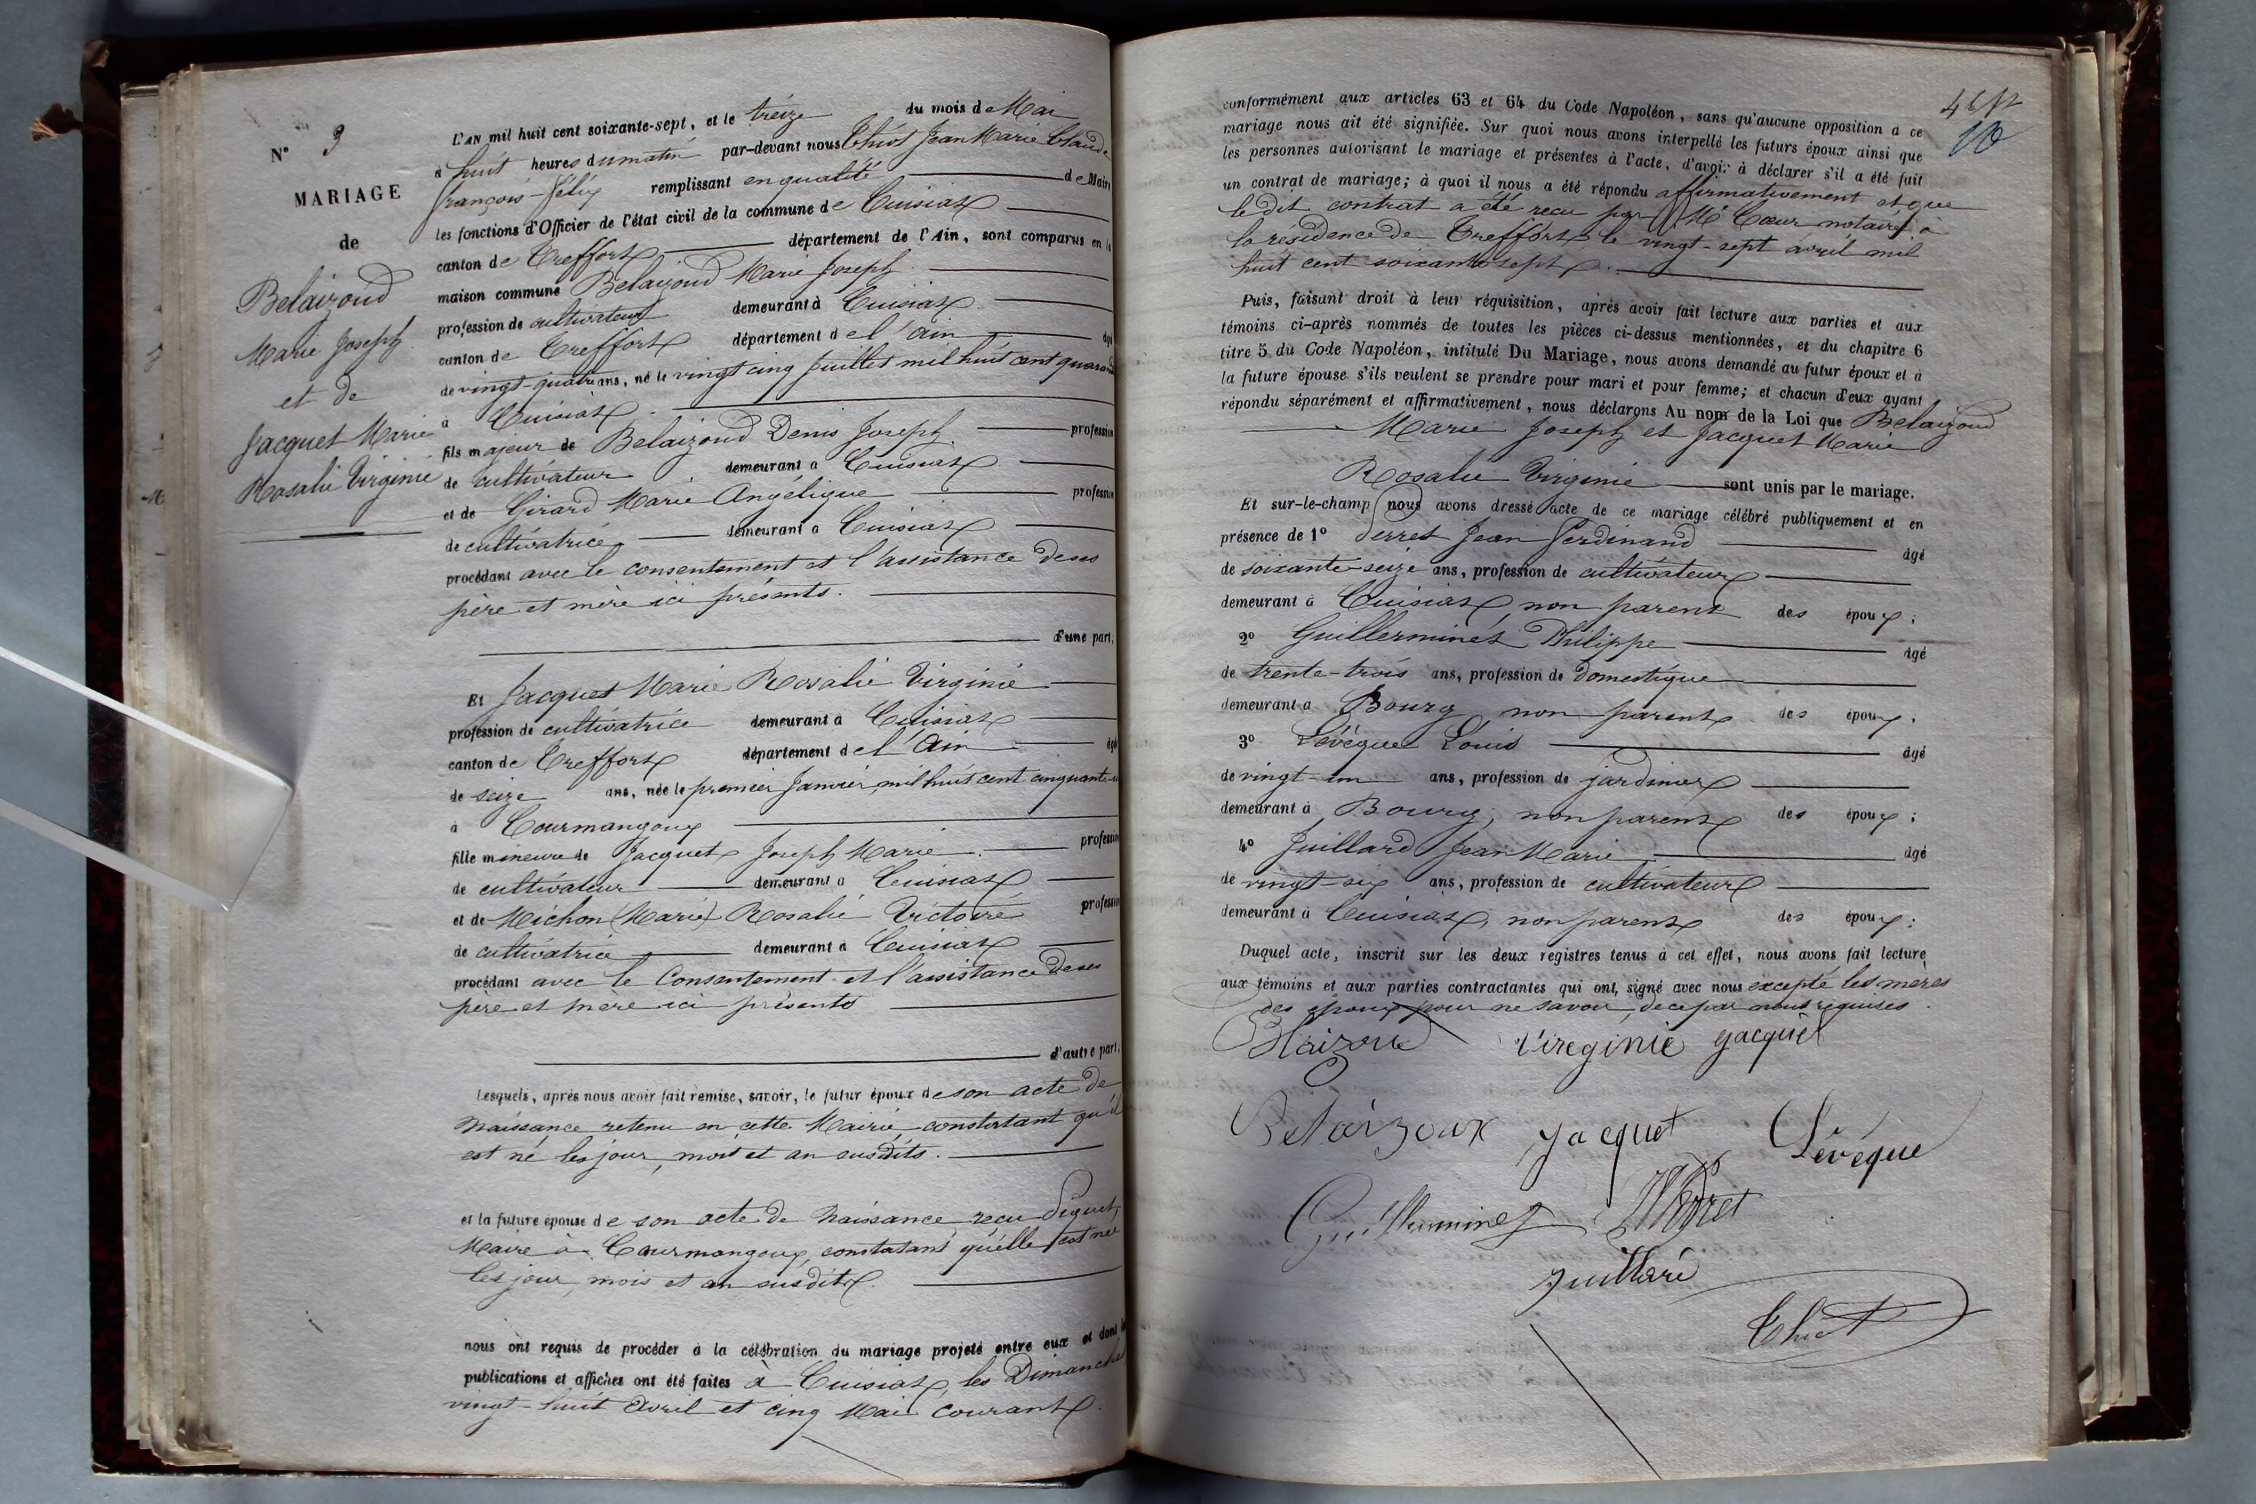 N° 3
MARIAGE
de
Belaizoud
Marie Joseph
et de
Jacquet Marie
Rosalie Virginie
L'AN mil huit cent soixante-sept, et le treize du mois de Mai
à huit heures du matin par-devant nous Thiot Jean Marie Claude
françois-félix remplissant en qualité de Maire
les fonctions d'Officier de l'état civil de la commune de Cuisiat
canton de Treffort département de l'Ain, sont comparus en la
maison commune Belaizoud Marie Joseph
profession de cultivateur demeurant à Cuisiat
canton de Treffort département de l'ain âgé
de vingt-quatre ans, né le vingt cinq Juillet mil huit cent quarante
à Cuisiat
fils majeur de Belaizoud Denis Joseph profession
de cultivateur demeurant à Cuisiat
et de Girard Marie Angélique profession
de cultivatrice demeurant à Cuisiat
procédant avec le consentement et l'assistance de ses
père et mère ici présents.
d'une part,
Et Jacquet Marie Rosalie Virginie
profession de cultivatrice demeurant à Cuisiat
canton de Treffort département de l'Ain âgé
de seize ans, née le premier Janvier mil huit cent cinquante-un
à Courmangoux
fille mineure de Jacquet Joseph Marie profession
de cultivateur demeurant à Cuisiat
et de Michon (Marie) Rosalie Victoire profession
de cultivatrice demeurant à Cuisiat
procédant avec le Consentement et l'assistance de ses
père et mère ici présents
d'autre part,
Lesquels, après nous avoir fait remise, savoir, le futur époux de son acte de
naissance retenu en cette Mairie constatant qu'il
est né les jour, mois et an susdits.
et la future épouse de son acte de naissance reçu
Maire à Courmangoux, constatant qu'elle est née
les jour, mois et an susdits.
nous ont requis de procéder à la célébration du mariage projeté entre eux et dont les
publications et affiches ont été faites à Cuisiat, les Dimanches
vingt-huit Avril et cinq Mai courant.
46
10
conformément aux articles 63 et 64 du Code Napoléon, sans qu'aucune opposition à ce
mariage nous ait été signifiée. Sur quoi nous avons interpellé les futurs époux ainsi que
les personnes autorisant le mariage et présentes à l'acte, d'avoir à déclarer s'il a été fait
un contrat de mariage; à quoi il nous a été répondu affirmativement et que
le dit contrat a été reçu par Me Cœur notaire à
la résidence de Treffort le vingt-sept avril mil
huit cent soixante sept.
Puis, faisant droit à leur réquisition, après avoir fait lecture aux parties et aux
témoins ci-après nommés de toutes les pièces ci-dessus mentionnées, et du chapitre 6
titre 5 du Code Napoléon, intitulé Du Mariage, nous avons demandé au futur époux et à
la future épouse s'ils veulent se prendre pour mari et pour femme; et chacun d'eux ayant
répondu séparément et affirmativement, nous déclarons Au nom de la Loi que Belaizoud
Marie Joseph et Jacquet Marie
Rosalie Virginie sont unis par le mariage.
Et sur-le-champ nous avons dressé acte de ce mariage célébré publiquement et en
présence de 1° Perret Jean Ferdinand âgé
de soixante-seize ans, profession de cultivateur
demeurant à Cuisiat, non parent des époux;
2° Guillerminet Philippe âgé
de trente-trois ans, profession de Domestique
demeurant à Bourg non parent des époux,
3° Lévéque Louis âgé
de vingt-un ans, profession de jardinier
demeurant à Bourg, non parent des époux;
4° Juillard Jean Marie âgé
de vingt-six ans, profession de cultivateur
demeurant à Cuisiat, non parent des époux;
Duquel acte, inscrit sur les deux registres tenus à cet effet, nous avons fait lecture
aux témoins et aux parties contractantes qui ont, signé avec nous excepté les mères
des époux pour ne savoir, de ce par nous requises.
Blaizoud Vireginie Jacquet
Belaizoux Jacquet Lévéque
Guillerminet Perret
Juillard
Thiot